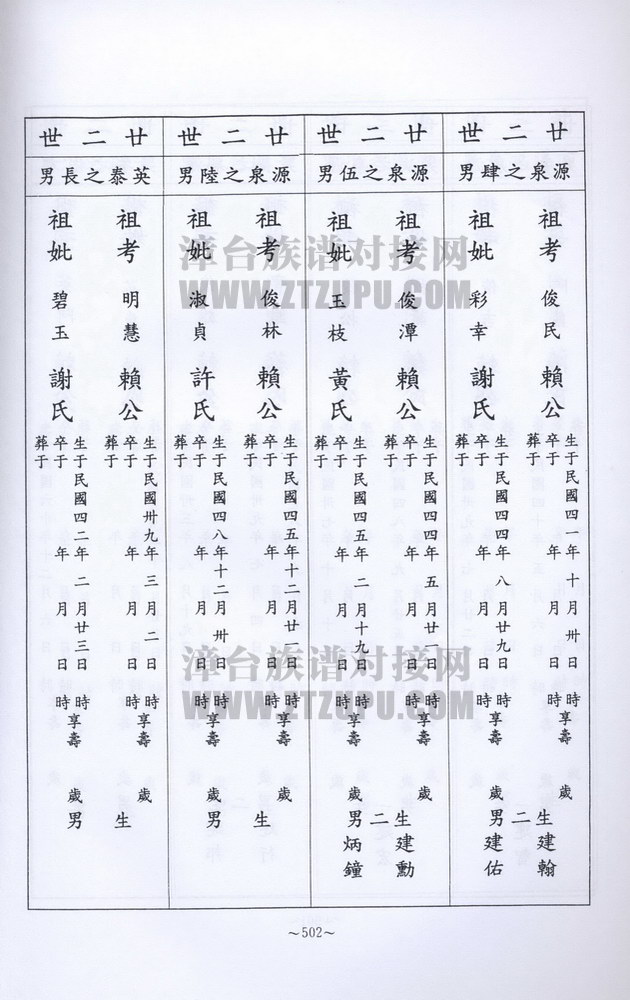 廿二世
源泉之肆男
祖考 俊民 賴公
生于民國四一年十月卅日 時享壽 歲
卒于 年 月 日 時
葬于
祖妣 彩幸 謝氏
生于民國四四年八月廿九日 時享壽
卒于 年 月 日 時
葬于
生二男 建翰 建佑
廿二世
源泉之伍男
祖考 俊潭 賴公
生于民國四四年五月廿一日 時享壽 歲
卒于 年 月 日 時
葬于
祖妣 玉枝 黃氏
生于民國四五年二月十九日 時享壽 歲
卒于 年 月 日 時
葬于
生二男 建勳 炳鐘
廿二世
源泉之陸男
祖考 俊林 賴公
生于民國四五年十二月廿一日 時享壽 歲
卒于 年 月 日 時
葬于
祖妣 淑貞 許氏
生于民國四八年十二月卅日 時享壽 歲
卒于 年 月 日 時
葬于
生 男
廿二世
英泰之長男
祖考 明慧 賴公
生于民國卅九年三月二日 時享壽 歲
卒于 年 月 日 時
葬于
祖妣 碧玉 謝氏
生于民國四二年二月廿三日 時享壽 歲
卒于 年 月 日 時
葬于
生 男
漳台族谱对接网
WWW.ZTZUPU.COM
漳台族谱对接网
WWW.ZTZUPU.COM
～502～